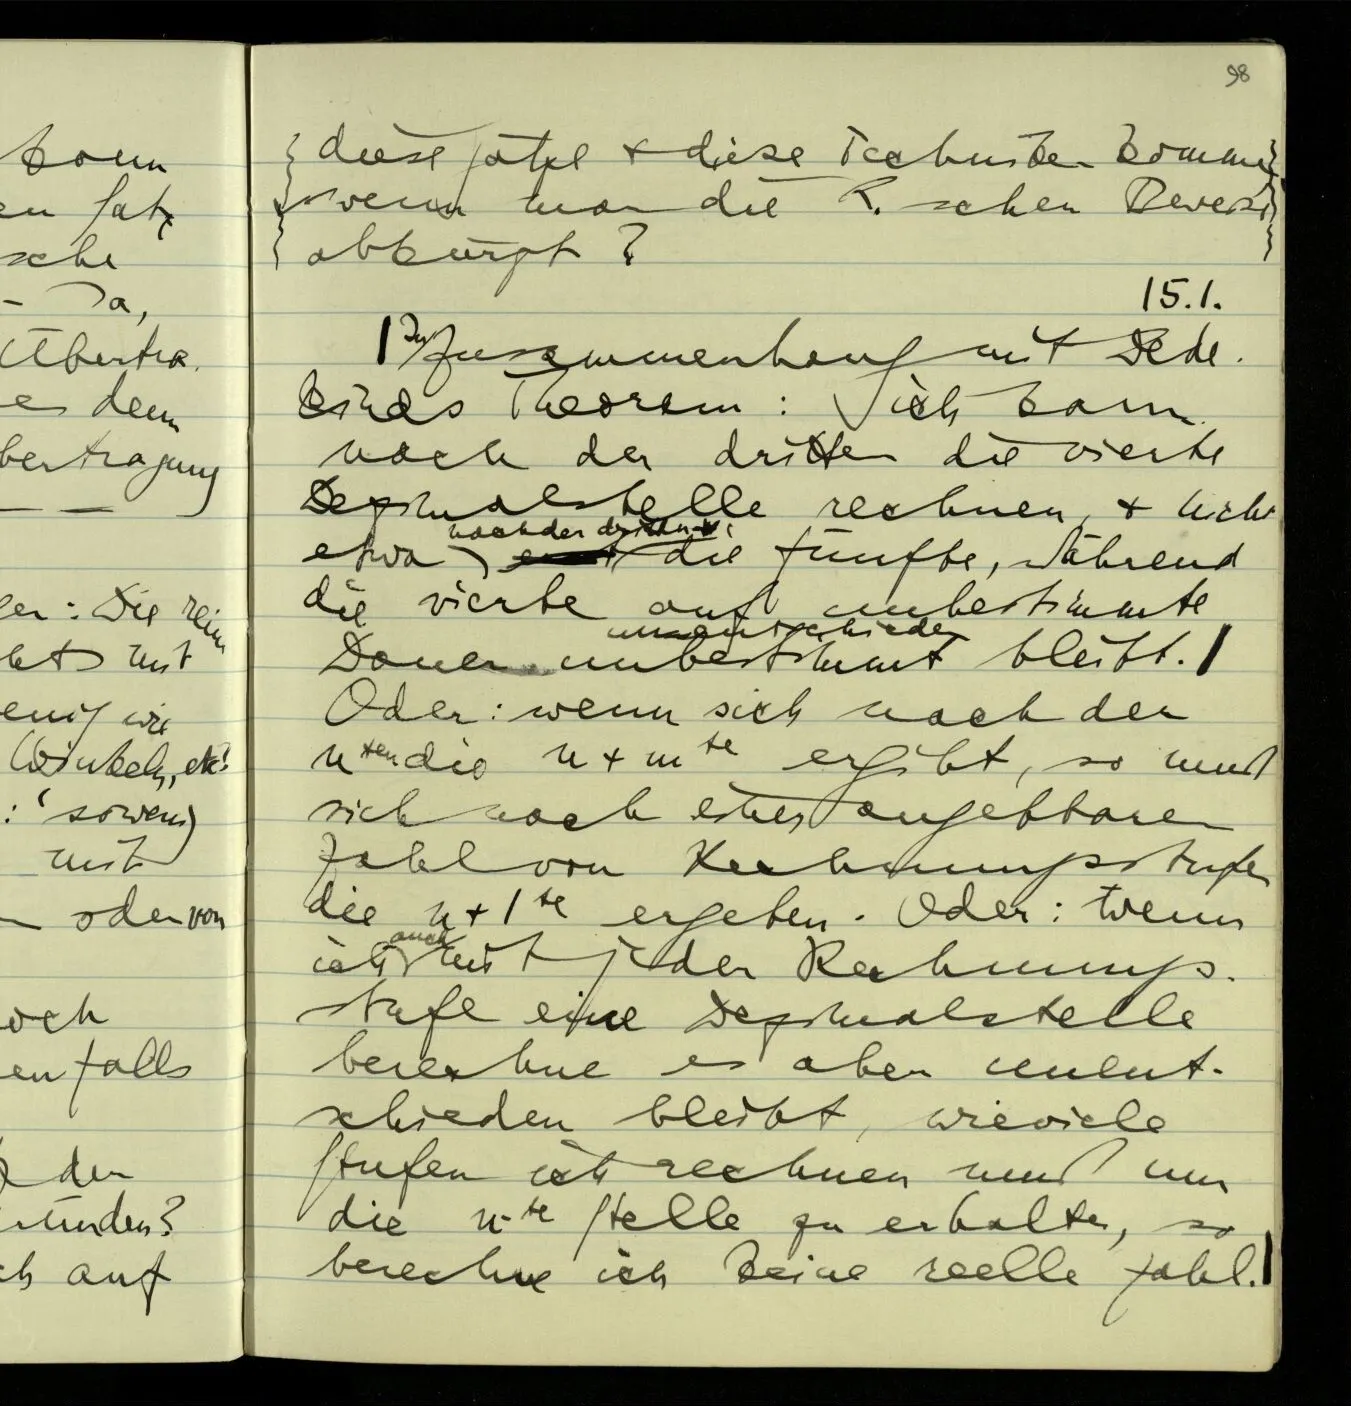 kann
en Satz
sche
– Ja,
Übertra.
es dem
bertragung
– –
er: Die rein
ht mit
enig wie
Winkeln, etc.
: 'sowenig
mit
oder von
och
enfalls
der
ründen?
ch auf
98
diese Sätze & diese Techniken komme
wenn man die R. schen Beweise
abkürzt?
15.1.
Im Zusammenhang mit Dede.
kinds Theorem: Ich kann
nach der dritten die vierte
Dezimalstelle rechnen, & nicht
nach der dritten
etwa die fünfte, während
die vierte auf unbestimmte
unentschieden
Dauer unbestimmt bleibt.
Oder: wenn sich nach der
nten die n+mte ergibt, so muß
sich nach einer angebbaren
Zahl von Rechnungsstufen
die n+1te ergeben. Oder: wenn
auch
ich mit jeder Rechnungs.
stufe eine Dezimalstelle
berechne es aber unent.
schieden bleibt, wieviele
Stufen ich rechnen muß um
die n-te Stelle zu erhalten, so
berechne ich keine reelle Zahl.